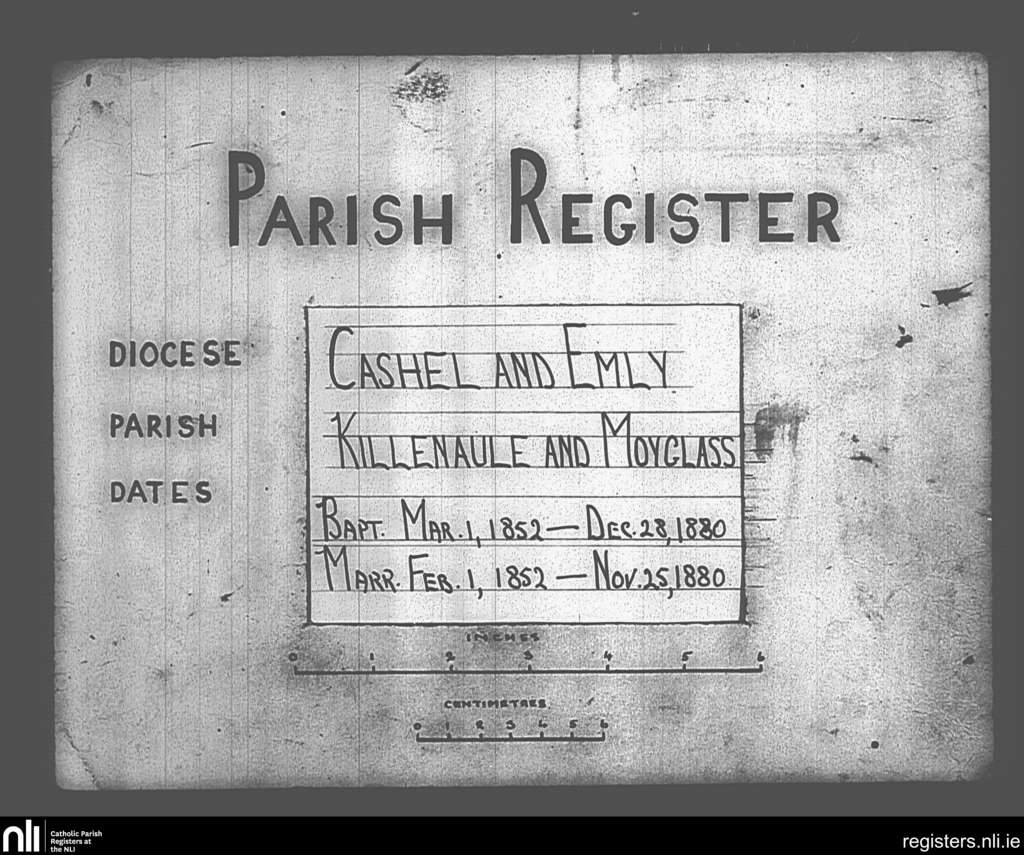 PARISH REGISTER
DIOCESE CASHEL AND EMLY
PARISH KILLENAULE AND MOYGLASS
DATES BAPT. MAR. 1, 1852 — DEC. 28, 1880
MARR. FEB. 1, 1852 — NOV. 25, 1880
INCHES
0 1 2 3 4 5 6
CENTIMETRES
0 1 2 3 4 5 6
nli Catholic Parish
Registers at
the NLI
registers.nli.ie